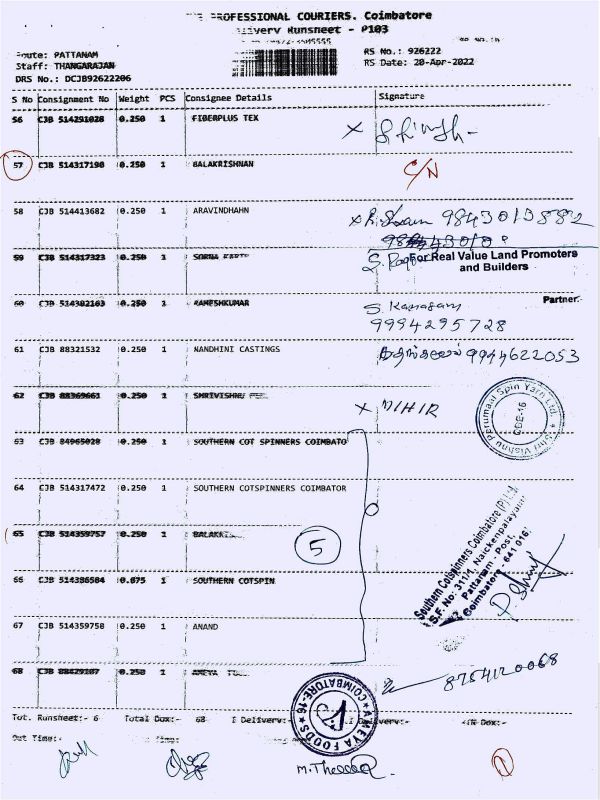 THE PROFESSIONAL COURIERS. Coimbatore
Delivery Runsheet - P103
Route: PATTANAM
Staff: THANGARAJAN
DRS No.: DCJB92622206
RS No.: 926222
RS Date: 20-Apr-2022
S No Consignment No Weight PCS Consignee Details Signature
56 CJB 514291028 0.250 1 FIBERPLUS TEX
57 CJB 514317190 0.250 1 BALAKRISHNAN C/N
58 CJB 514413682 0.250 1 ARAVINDHAHN
59 CJB 514317323 0.250 1 SORNA
For Real Value Land Promoters
and Builders
Partner.
60 CJB 514382163 0.250 1 RAMESHKUMAR
9994295728
61 CJB 88321532 0.250 1 NANDHINI CASTINGS 9944622053
62 CJB 88369661 0.250 1 SHRIVISHNU X MIHIR
Shri Vishnu Perumaal Spin Yarn Ltd.
CBE-16
63 CJB 84965028 0.250 1 SOUTHERN COT SPINNERS COIMBATO
64 CJB 514317472 0.250 1 SOUTHERN COTSPINNERS COIMBATOR
65 CJB 514359757 0.250 1 BALAKRI
5
Southern Cotspinners Coimbatore (P) Ltd
S.F. No: 311/1, Naickenpalayam
Pattanam - Post,
Coimbatore - 641 016.
66 CJB 514386584 0.075 1 SOUTHERN COTSPIN
67 CJB 514359758 0.250 1 ANAND
68 CJB 88429107 0.250 1 AMEYA
8754120068
AMEYA FOODS
COIMBATORE-16
Tot. Runsheet:- 6 Total Dox:- 68 Delivery:- Delivery:- Dox:-
Out Time:-